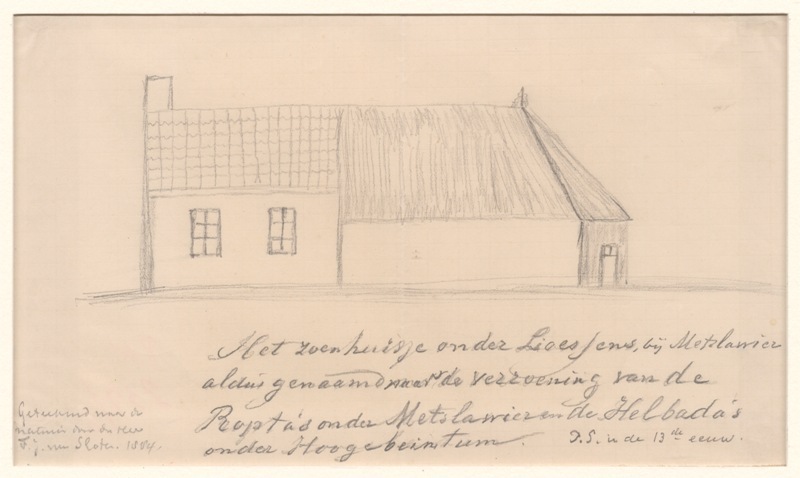 Het zoenhuisje onder Lioessens, bij Metslawier
aldus genaamd naar de verzoening van de
Ropta's onder Metslawier en de Helbada's
onder Hoogebeintum.
D.S. in de 13de eeuw.
Geteekend naar de
natuur door de Heer
1864.